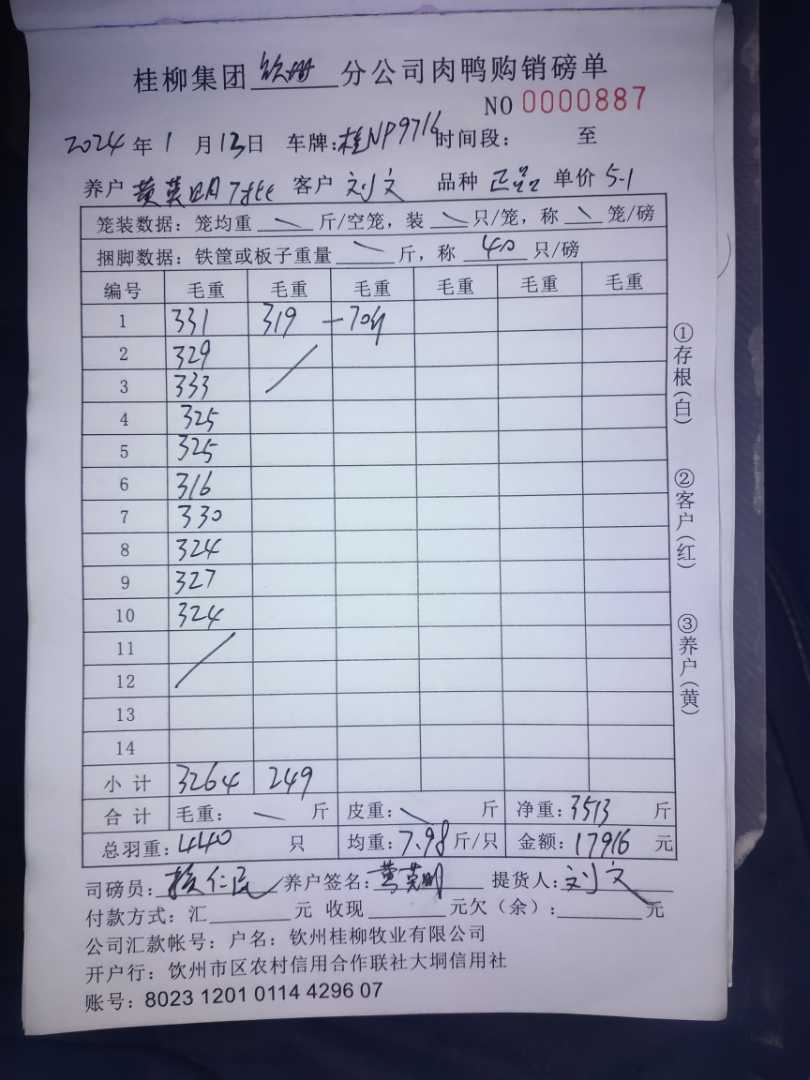 桂柳集团 钦州 分公司肉鸭购销磅单
NO 0000887
2024年1月13日 车牌:桂NP9716 时间段: 至
养户 黄英明 客户 刘文 品种 正品 单价 5.1
笼装数据:笼均重 斤/空笼,装 只/笼,称 笼/磅
捆脚数据:铁筐或板子重量 斤,称 40 只/磅
编号 毛重 毛重 毛重 毛重 毛重 毛重
1 331 319 -70斤
2 329
3 333
4 325
5 325
6 316
7 330
8 324
9 327
10 324
11
12
13
14
小计 3264 249
合计 毛重: 斤 皮重: 斤 净重:3513 斤
总羽重:440 只 均重:7.98斤/只 金额:17916 元
司磅员: 仁民 养户签名:黄英明 提货人:刘文
付款方式:汇 元 收现 元欠(余): 元
公司汇款帐号:户名:钦州桂柳牧业有限公司
开户行:钦州市区农村信用合作联社大垌信用社
账号:8023 1201 0114 4296 07
①存根(白)
②客户(红)
③养户(黄)